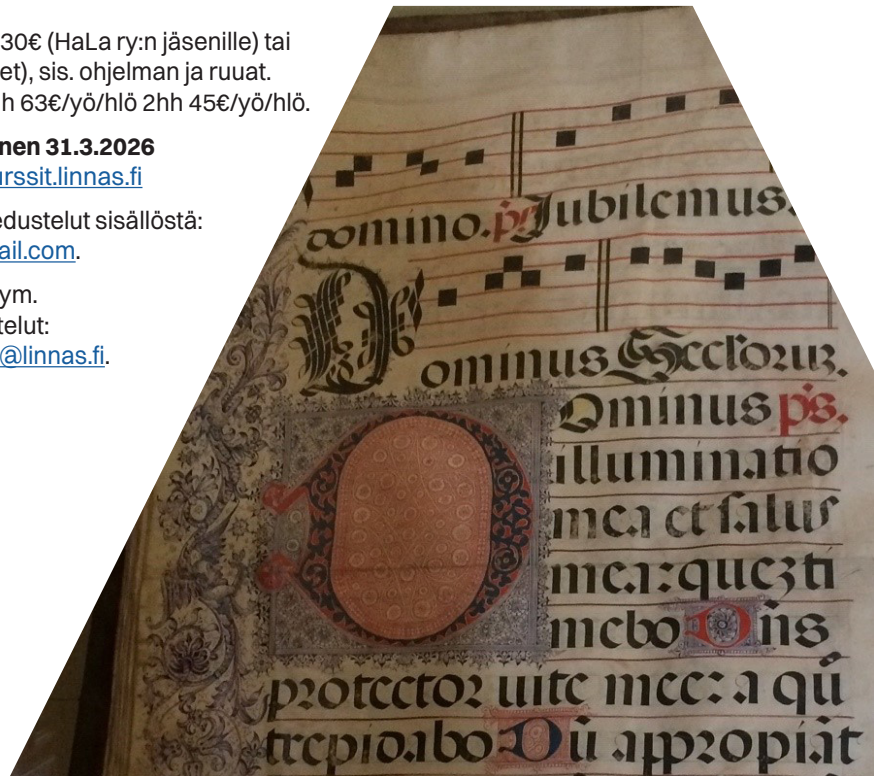 30€ (HaLa ry:n jäsenille) tai
et), sis. ohjelman ja ruuat.
h 63€/yö/hlö 2hh 45€/yö/hlö.
nen 31.3.2026
urssit.linnas.fi
edustelut sisällöstä:
ail.com.
ym.
telut:
@linnas.fi.
domino. ps Jubilemus.
Dominus
Dominus ps.
illuminatio
mea et salus
mea: quez ti
mebo Dñs
protector uite mee: a qū
trepidabo Dū appropiāt